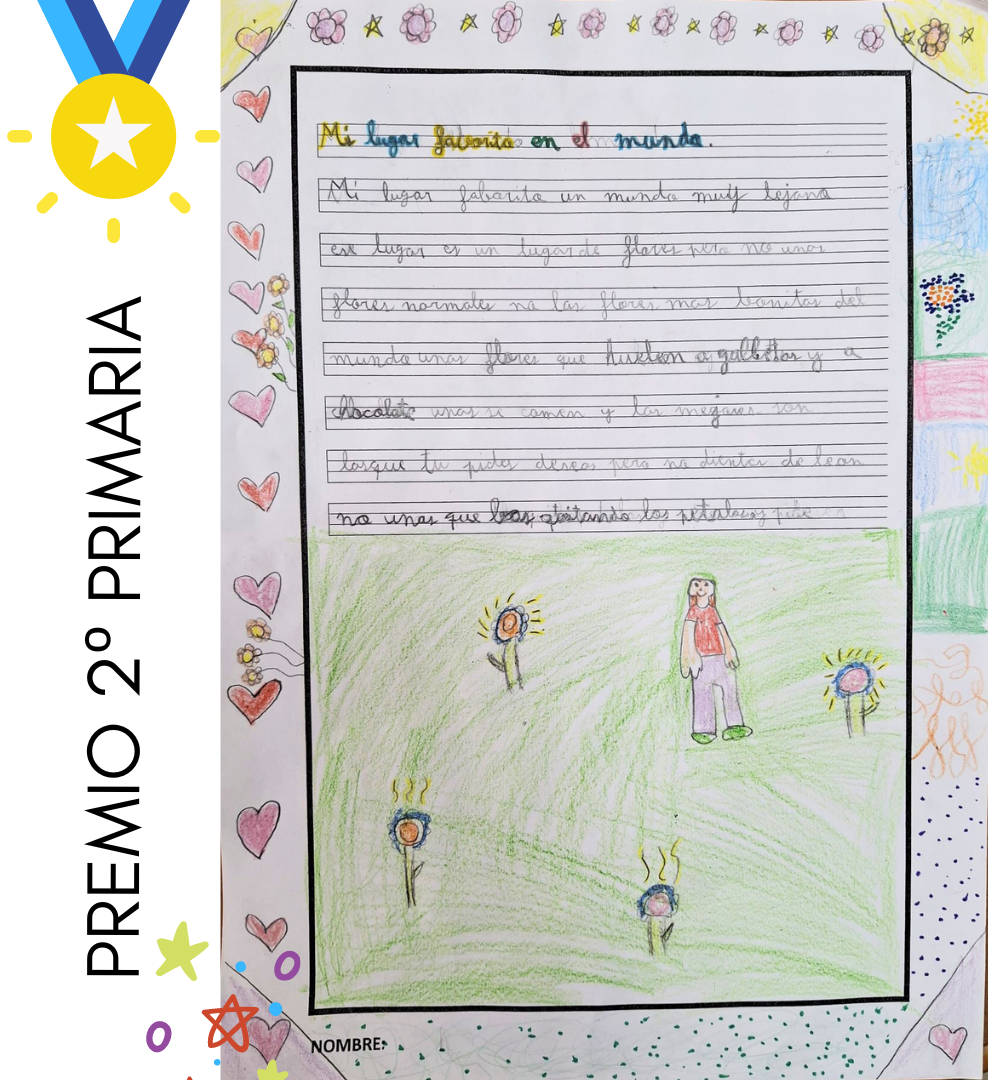 PREMIO 2º PRIMARIA
Mi lugar faborito en el mundo.
Mi lugar faborito un mundo muy lejano
ese lugar es un lugar de flores pero no unas
flores normales no las flores mas bonitas del
mundo unas flores que huelen a gallettas y a
chocolate unas si comen y las mejores son
lasque tu pides deseos pero no dientes de lean
no unas que los petalos y pide
NOMBRE: